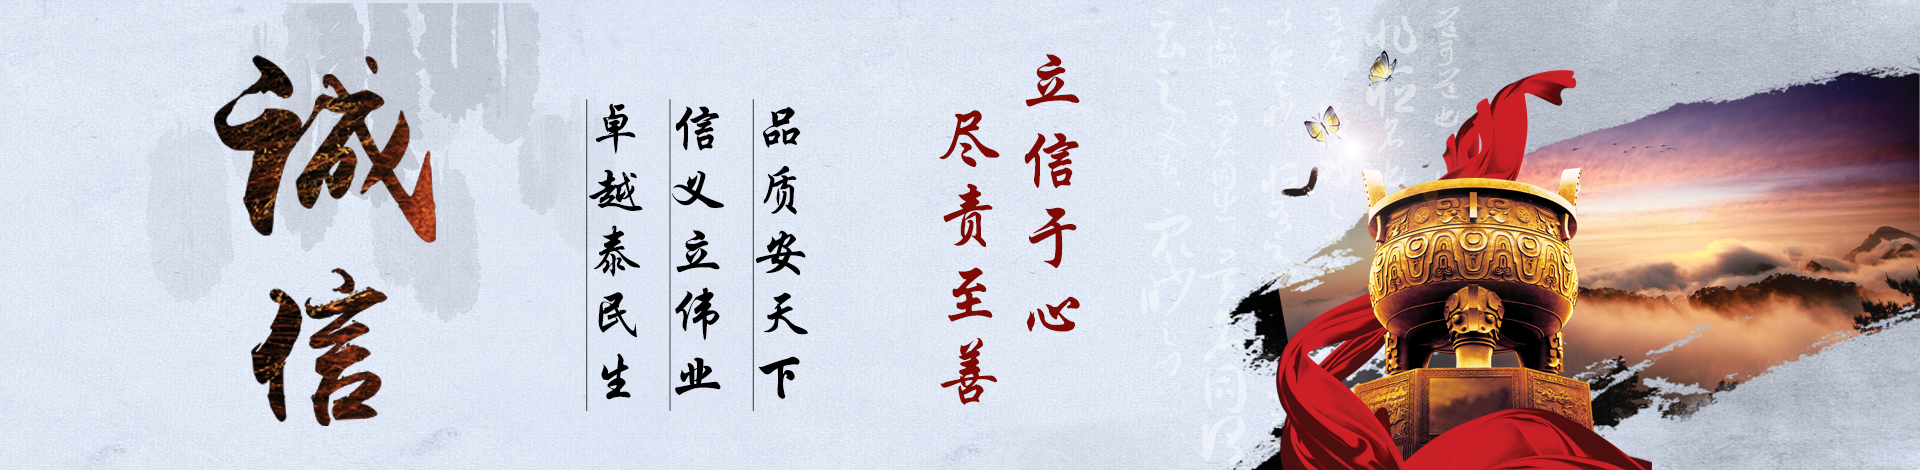 立信于心
尽责至善
品质安天下
信义立伟业
卓越泰民生
诚信